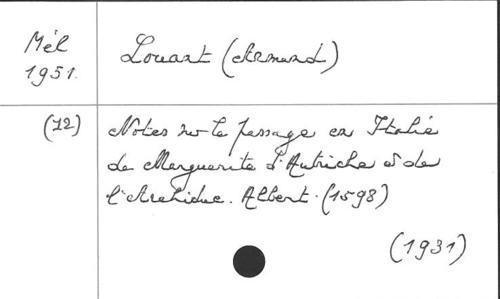 Mél
1951.
Louant (Armand)
(72)
Notes sur le passage en Italie
de Marguerite d'Autriche et de
l'Archiduc. Albert. (1598)
(1931)